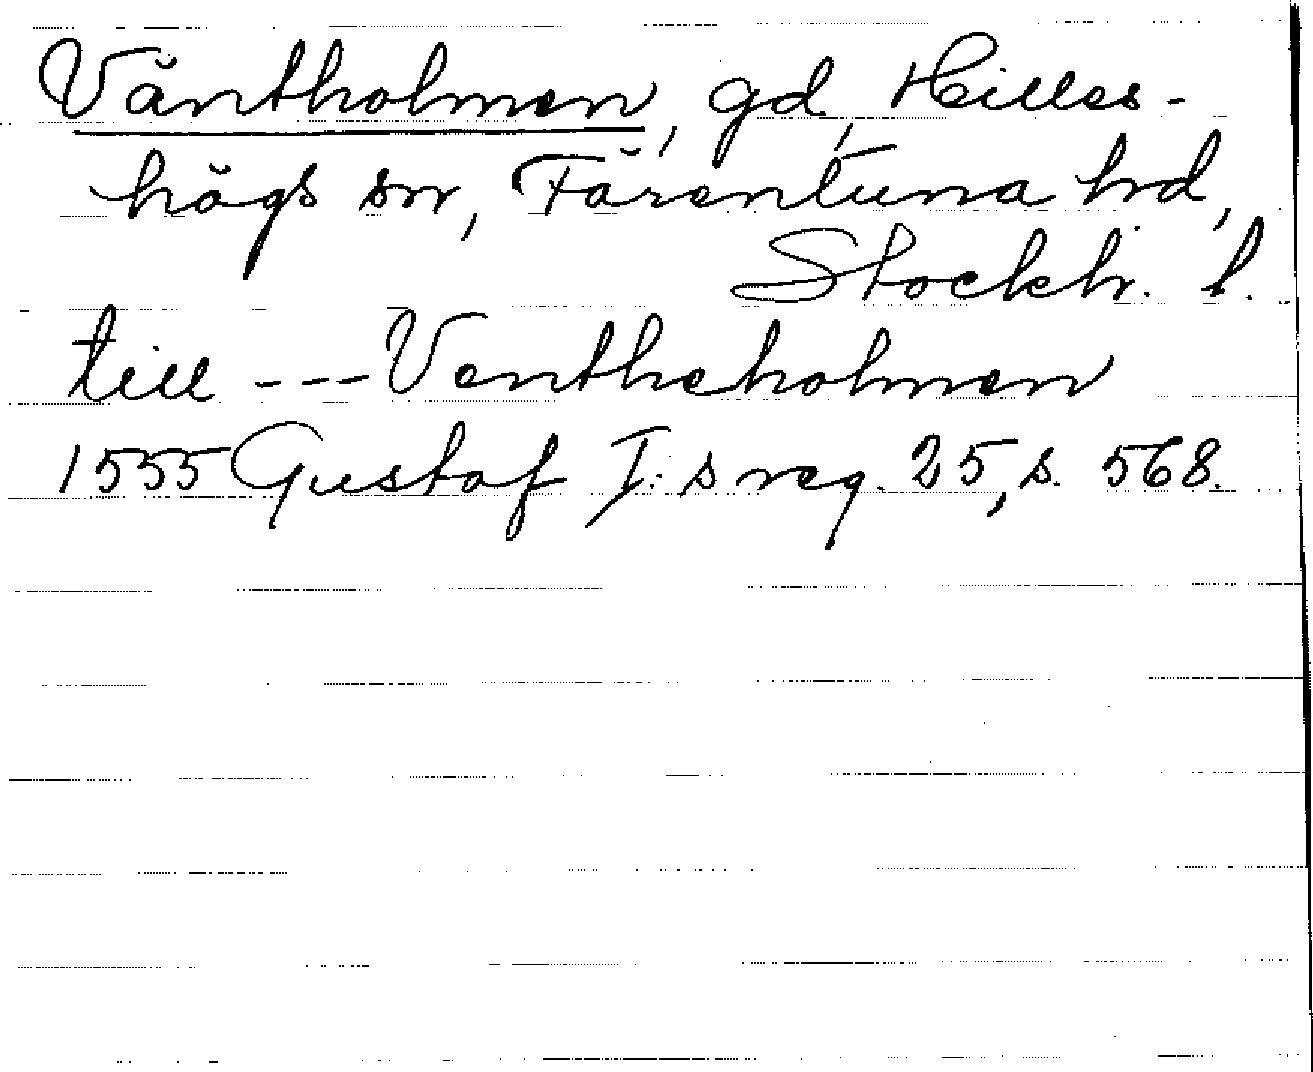 Väntholmen, gd, Hilles-
högs sn, Färentuna hd,
Stockh. l.
till --- Ventheholmen
1555 Gustaf I:s reg. 25, s. 568.